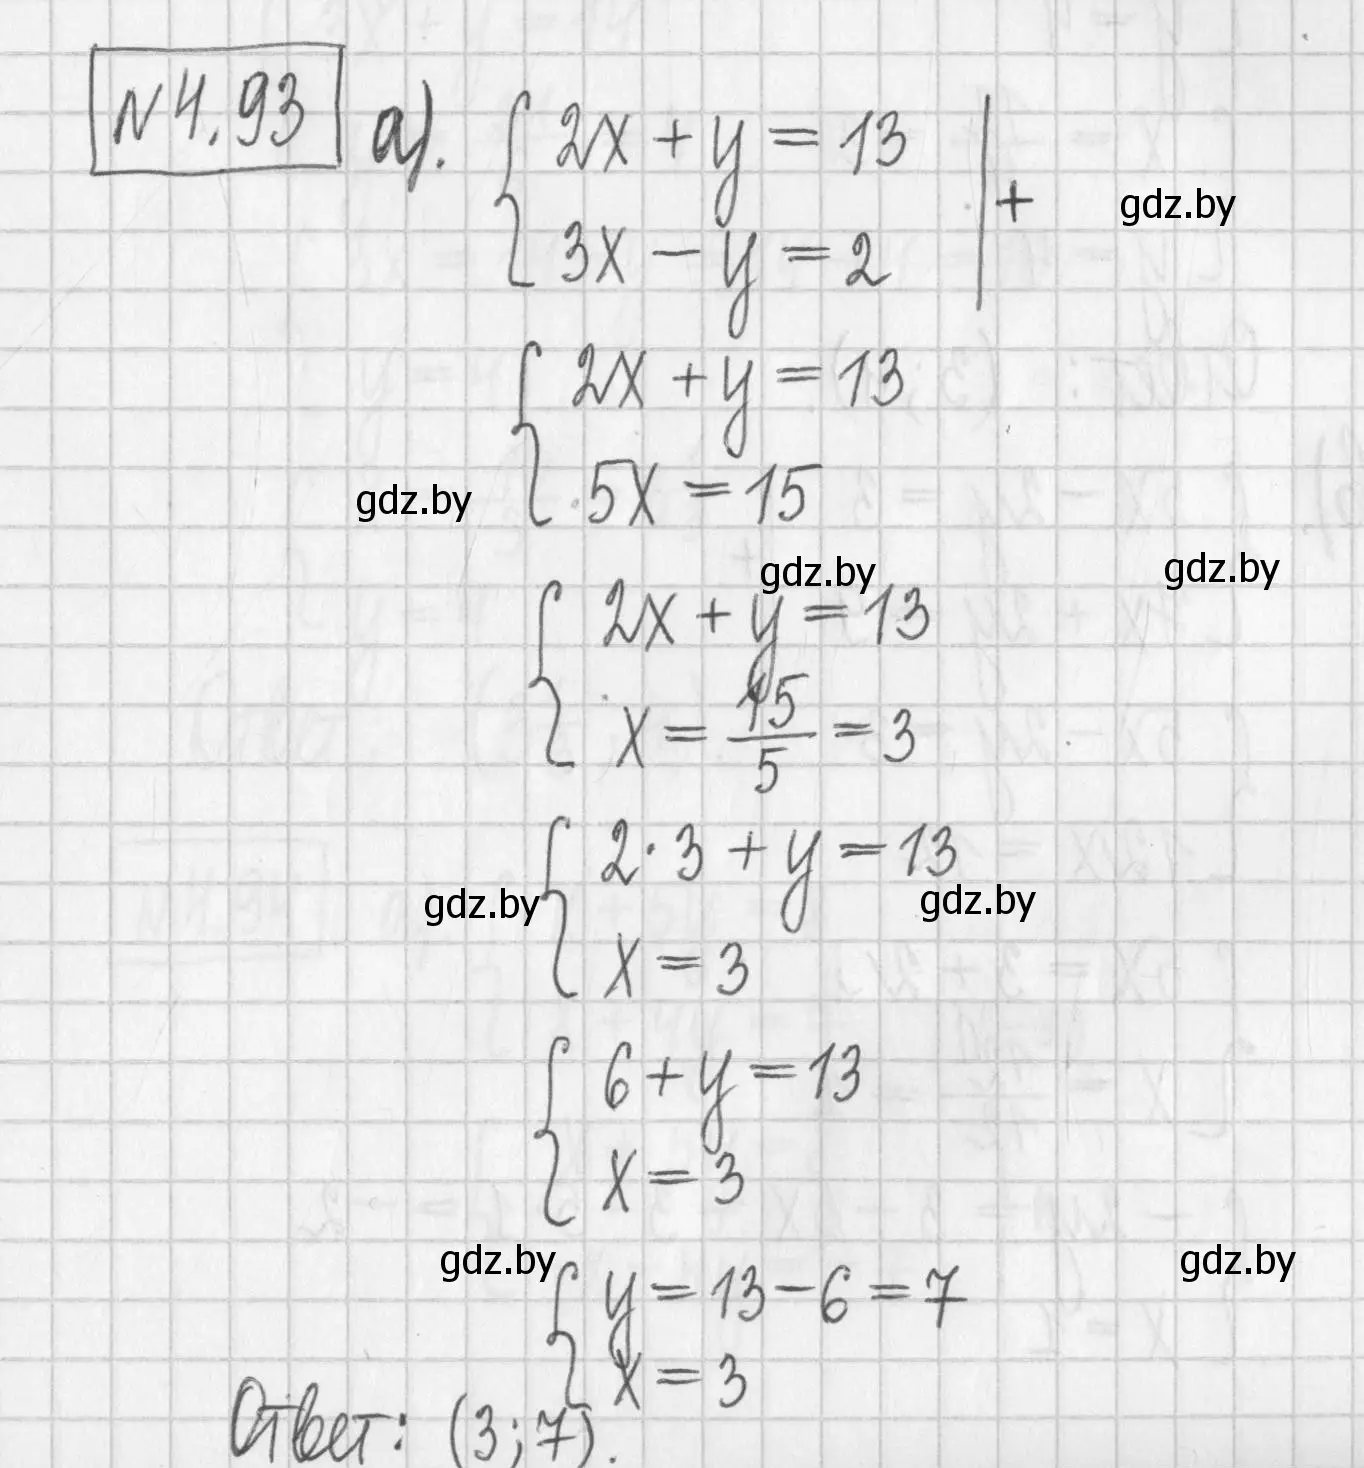 №4.93 а). { 2x + y = 13 | +
gdz.by
3x − y = 2
{ 2x + y = 13
5x = 15
gdz.by
gdz.by
gdz.by
{ 2x + y = 13
x = 15/5 = 3
{ 2·3 + y = 13
gdz.by
gdz.by
x = 3
{ 6 + y = 13
x = 3
gdz.by
gdz.by
{ y = 13 − 6 = 7
x = 3
Ответ: (3; 7).